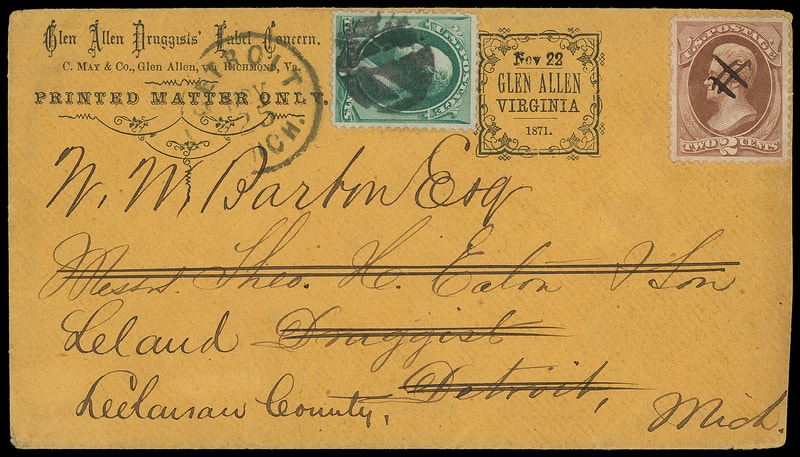 Glen Allen Druggists' Label Concern.
C. MAY & Co., Glen Allen, via RICHMOND, Va.
PRINTED MATTER ONLY.
DETROIT
MICH.
U.S. POSTAGE
Nov 22
GLEN ALLEN
VIRGINIA
1871.
U.S. POSTAGE
TWO 2 CENTS
W. W. Barton Esq
Messrs. Theo. H. Eaton & Son
Leland Druggist
Detroit,
Leelanaw County, Mich.